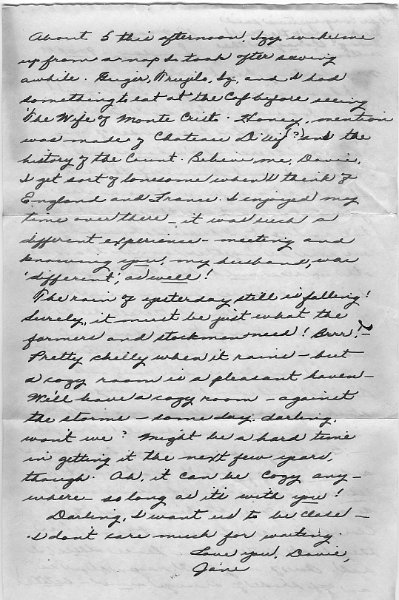 About 5 this afternoon, Izzy woke me
up from a nap I took after sewing
awhile. Trujilo, Iz, and I had
something to eat at the Caf before seeing
"The Wife of Monte Cristo." Honey, mention
was made of Chateau D'If (?) and the
history of the Count. Believe me, Davie,
I get sort of lonesome when I think of
England and France. I enjoyed my
time over there - it was such a
different experience - meeting and
knowing you, my husband, was
'different', as well!
The rain of yesterday still is falling!
Surely, it must be just what the
farmers and stockman need! Brrr! -
Pretty chilly when it rains - but
a cozy room is a pleasant haven -
We'll have a cozy room - against
the storms - some day, darling,
won't we? Might be a hard time
in getting it the next few years,
though. Ah, it can be cozy any-
where - so long as it's with you!
Darling, I want us to be close -
I don't care much for waiting.
Love you, Davie,
Jane